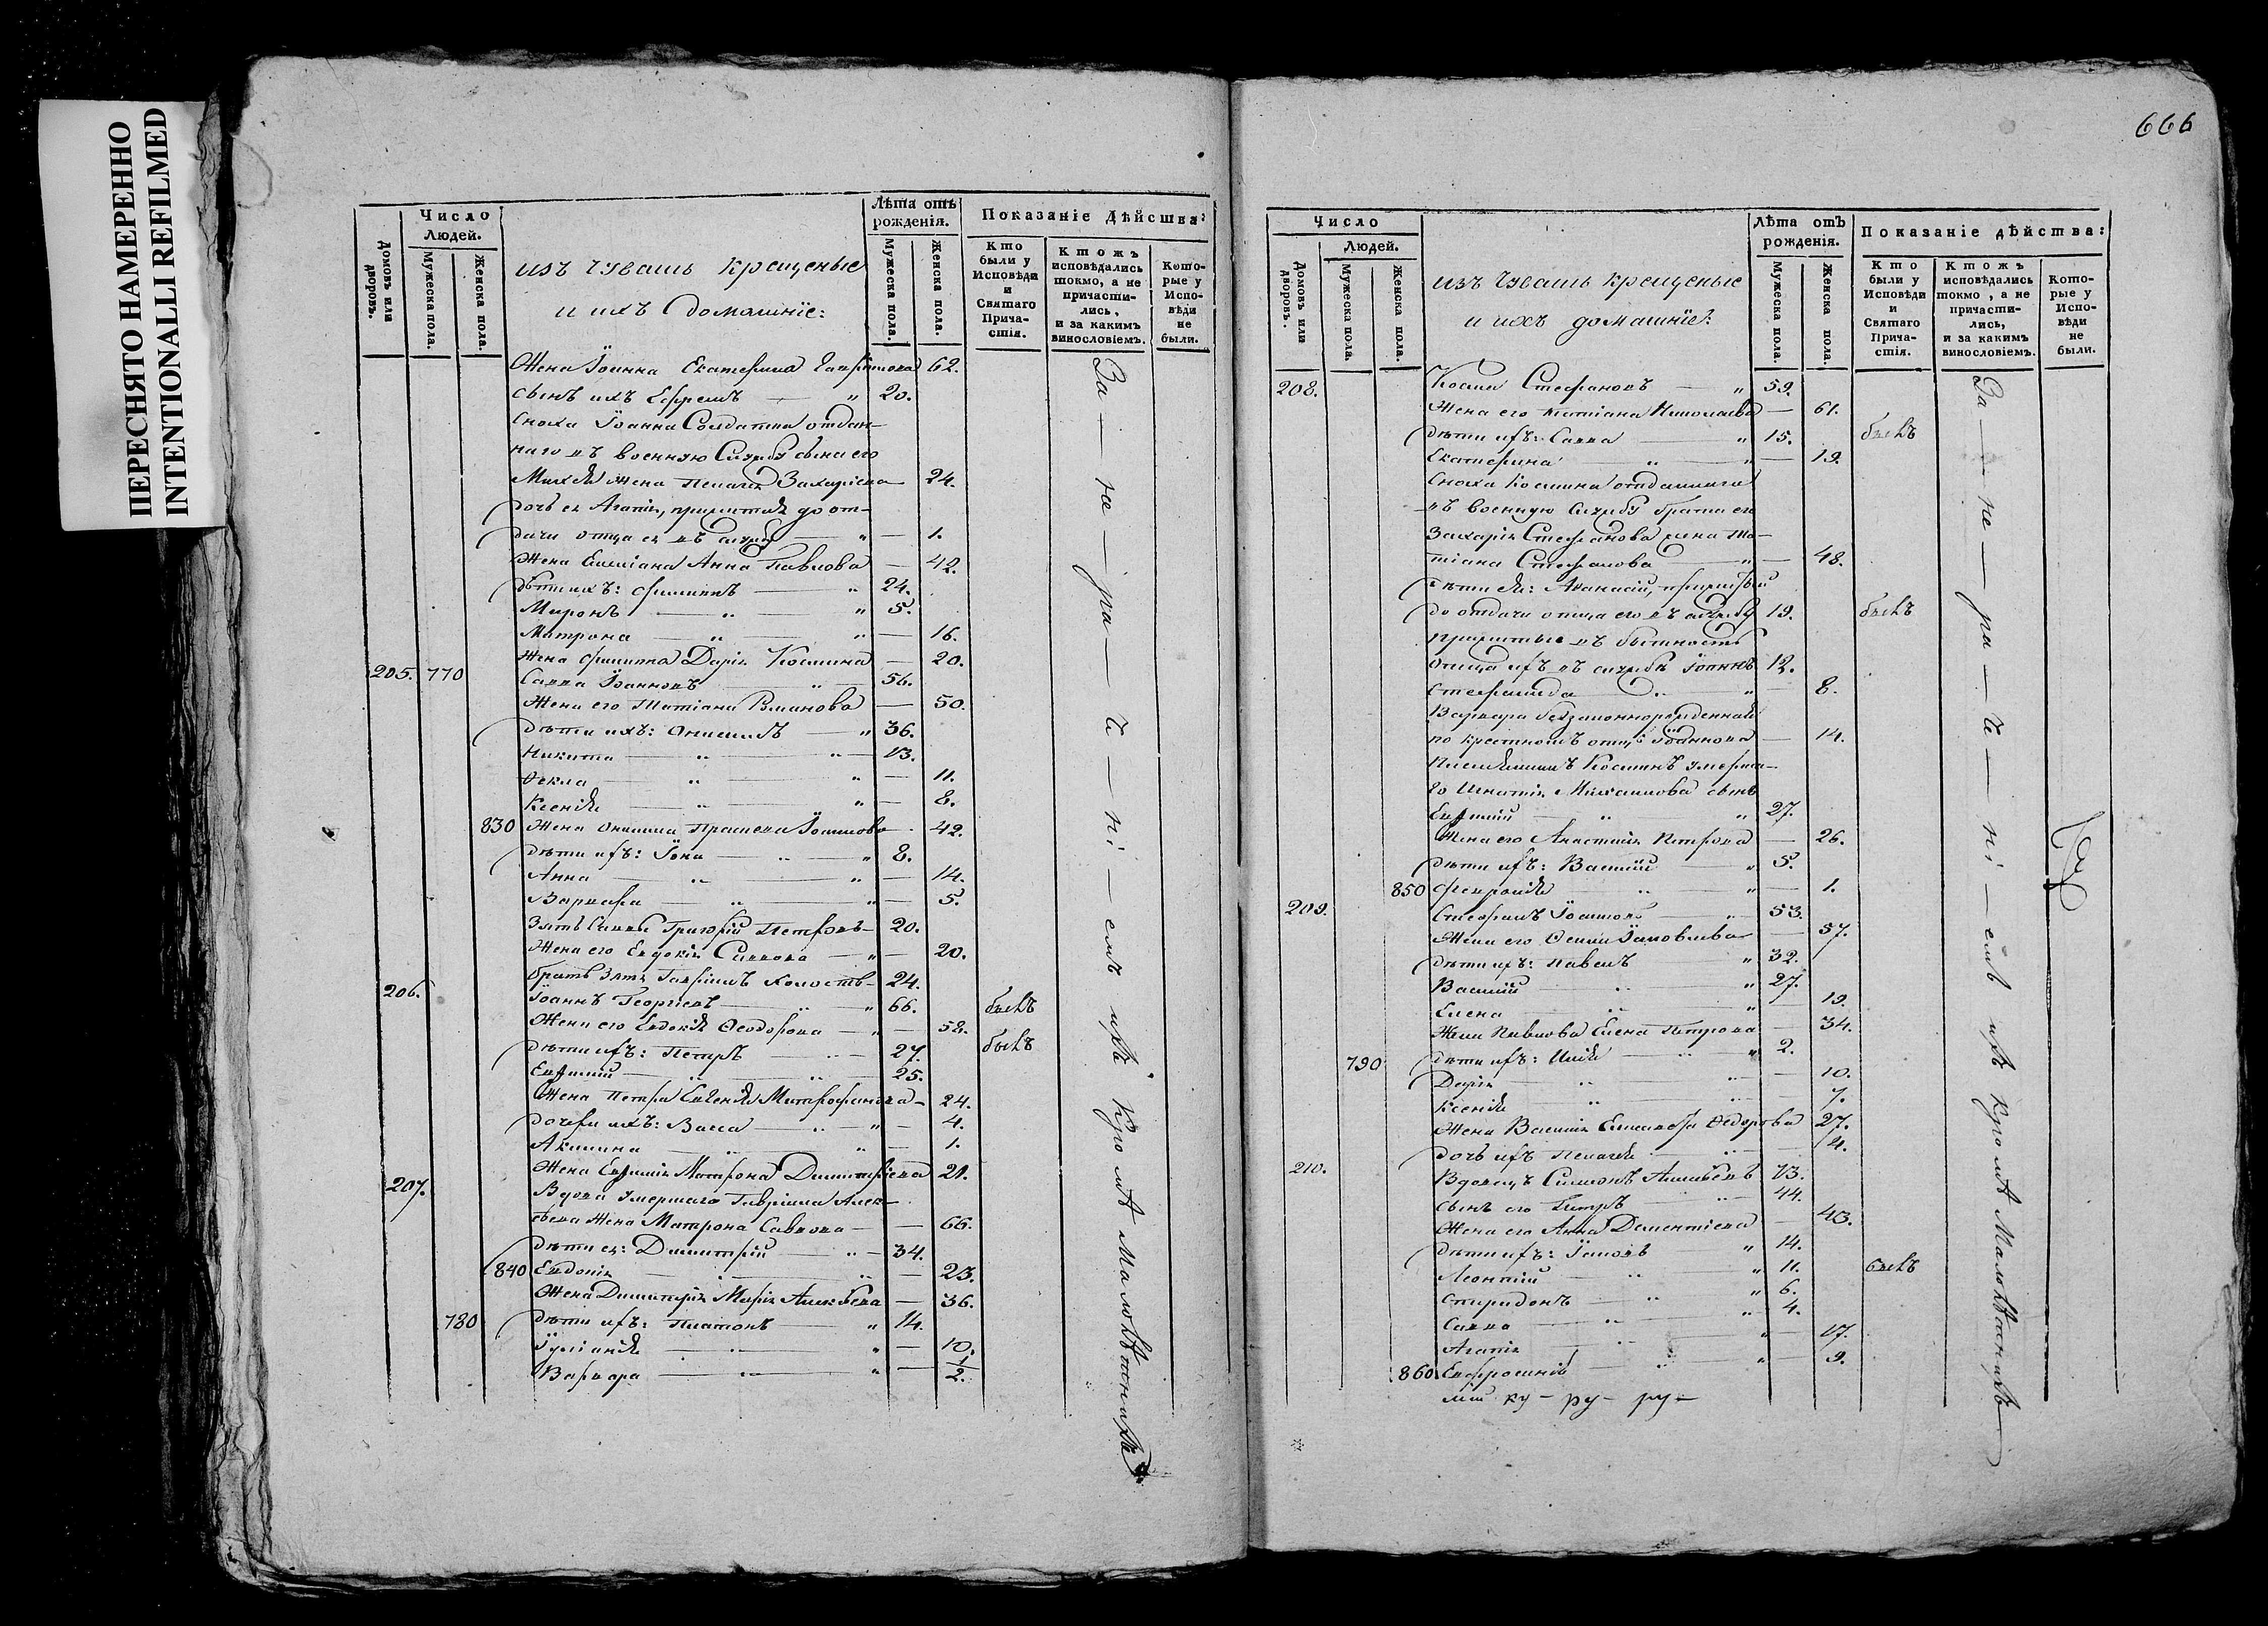 ПЕРЕСНЯТО НАМЕРЕННО
INTENTIONALLI REFILMED
666
Число
Людей.
Домовъ или дворовъ.
Мужеска пола.
Женска пола.
изъ Чувашъ крещеные
и ихъ домашніе:
Лѣта отъ рожденія.
Мужеска пола.
Женска пола.
Показаніе дѣйства:
Кто были у Исповѣди и Святаго Причастія.
Ктожъ исповѣдались токмо, а не причастились, и за какимъ винословіемъ.
Которые у Исповѣди не были.
Жена Іоанна Екатерина Гаврилова 62.
сынъ ихъ Ефремъ — " 20.
Сноха Іоанна Солдатка отдан-
наго въ военную Службу сына его
жена Пелагія Захаріева 24.
дочь ея Агапія, прижитая до от-
дачи отца ея въ службу — " — 1.
Жена Емиліана Анна Павлова — 42.
дѣти ихъ: Филиппъ — " 24.
Миронъ — " — " 5.
Матрона — " — " — 16.
Жена Филиппа Дарія Космина — 20.
205. 770 Савва Іоанновъ — " — 56.
Жена его Татіана — 50.
дѣти ихъ: Онисимъ — " 36.
Никита — " — " — 13.
Ѳекла — " — " — 11.
Ксенія — " — " — 8.
830 Жена Онисима 42.
дѣти ихъ: Іона — " — " 8.
Анна — " — " — 14.
Варвара — " — " — 5.
Зять Саввы Григорій Петровъ — 20.
Жена его Евдокія Саввова — " — 20.
братъ Зятя Гавріилъ холостъ — 24.
206. Іоаннъ Георгіевъ — " — " 66. былъ
Жена его Евдокія Ѳеодорова — " — 58. былъ
дѣти ихъ: Петръ — " — 27.
Евфимій — " — " — 25.
Жена Петра Евгенія Митрофанова — 24.
дочери ихъ: Васса — " — " — 4.
Акилина — " — " — 1.
Жена Евфимія Матрона Димитріева 21.
207. Вдова умершаго Гавріила Алек-
сѣева жена Матрона Саввова — — 66.
дѣти ея: Димитрій — " — 34.
840 Евдокія — " — " — 23.
Жена Димитрія Марія Алексѣева — 36.
780 дѣти ихъ: Платонъ — " 14.
Іуліанія — " — " — 10.
Варвара — " — " — 1/2.
За — не — ра — че — ні — емъ ихъ кромѣ малолѣтнихъ
Число
Людей.
Домовъ или дворовъ.
Мужеска пола.
Женска пола.
изъ Чувашъ крещеные
и ихъ домашніе:
Лѣта отъ рожденія.
Мужеска пола.
Женска пола.
Показаніе дѣйства:
Кто были у Исповѣди и Святаго Причастія.
Ктожъ исповѣдались токмо, а не причастились, и за какимъ винословіемъ.
Которые у Исповѣди не были.
208. Косма Стефановъ — " 59.
Жена его Татіана Николаева — 61.
дѣти ихъ: Савва — " 15. былъ
Екатерина — " — " — 19.
Сноха Космина отданнаго
въ военную службу брата его
Захарія Стефанова жена Та-
тіана Стефанова — " — 48.
дѣти ея: Аѳанасій, прижитый
до отдачи отца его въ службу 19. былъ
прижитые въ бытность
отца ихъ въ службѣ Іоаннъ 12.
Стефанида — " — " — 8.
Варвара беззаконнорожденная
по крестномъ отцѣ Іоаннова — 14.
Племянникъ Косминъ умерша-
го Игнатія Михаилова сынъ
Евфимій — " — " 27.
Жена его Анастасія Петрова — 26.
дѣти ихъ: Василій — " 5.
850 Феврониія — " — " — 1.
209. Стефанъ — " — 53.
Жена его Іаковлева — 57.
дѣти ихъ: Павелъ — " 32.
Василій — " — " 27.
Елена — " — " — 19.
Жена Павлова Елена Петрова — 34.
790 дѣти ихъ: Илія — " — " 2.
Дарія — " — " — 10.
Ксенія — " — " — 7.
Жена Василія Ѳедорова 27.
дочь ихъ Пелагія — " — 4.
210. Вдовецъ Симеонъ Алексѣевъ 73.
сынъ его Петръ — " — 44.
Жена его Анна Дементіева — 43.
дѣти ихъ: Іаковъ — " 14.
Леонтій — " — " 11. былъ
Спиридонъ — " — " 6.
Савва — " — " 4.
Агапія — " — " — 17.
860 Евфросинія — " — " — 9.
ку — ру — ру —
За — не — ра — че — ні — емъ ихъ кромѣ малолѣтнихъ